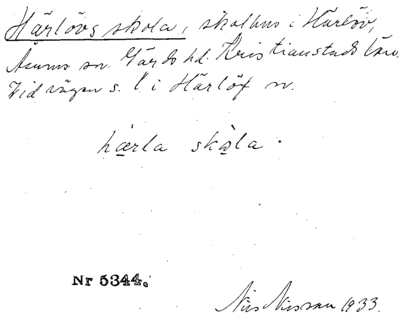 Härlövs skola, skolhus i Härlöv,
Åsums sn. Gärds hd. Kristianstads län.
Vid vägen s. l i Härlöf n.
hærla skola.
Nr 5344.
Nils Nilsson 1933.